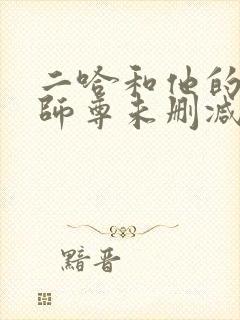 二哈和他的
師尊未删减
黯晋